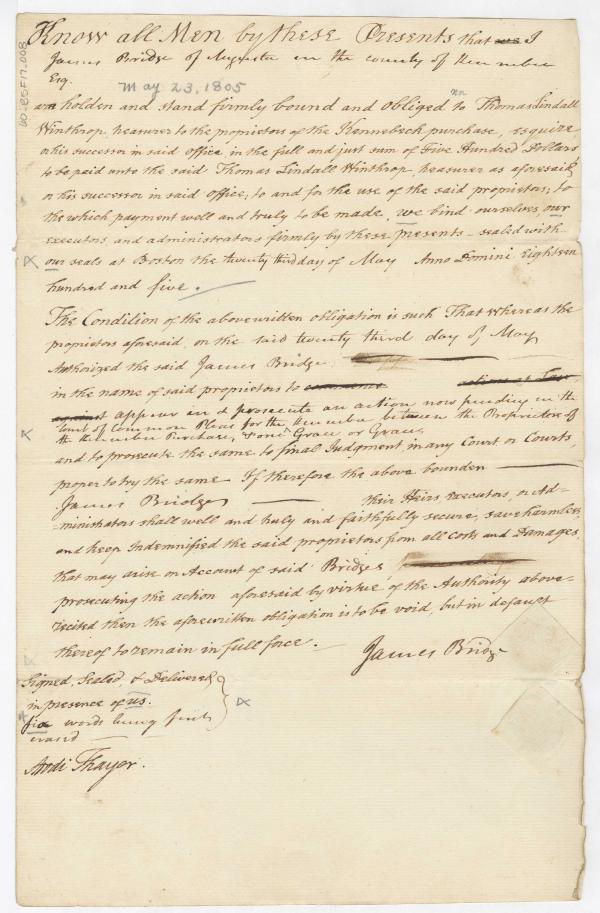 Know all Men by these Presents that we I
James Bridge of Augusta in the county of Kennebec
Esq.
May 23, 1805
am holden and stand firmly bound and obliged to Thomas Lindall
Winthrop, treasurer to the proprietors of the Kennebeck purchase, esquire,
or his successor in said office, in the full and just sum of Five Hundred Dollars
to be paid unto the said Thomas Lindall Winthrop, treasurer as aforesaid,
or his successor in said office; to and for the use of the said proprietors; to
the which payment well and truly to be made, we bind ourselves, our
executors and administrators firmly by these presents - sealed with
our seals at Boston the twenty third day of May Anno Domini Eighteen
hundred and five.
The Condition of the above written obligation is such That whereas the
proprietors aforesaid, on the said twenty third day of May
Authorized the said James Bridge
in the name of said proprietors to commence actions at Law
against appear in & prosecute an action now pending in the
Court of Common Pleas for the Kennebec between the Proprietors of
the Kennebec Purchase, & one Grace or Graves,
and to prosecute the same to final Judgment, in any Court or Courts,
proper to try the same If therefore the above bounden
James Bridge their Heirs executors, or Ad-
ministrators shall well and truly and faithfully secure, save harmless,
and keep Indemnified the said proprietors from all Costs and Damages,
that may arise on Account of said Bridge's
prosecuting the action aforesaid by virtue of the Authority above-
recited then the aforewritten obligation is to be void, but in default
thereof to remain in full force.
James Bridge
Signed, Sealed, & Delivered,
in presence of us.
six words being first
erased
Thayer.
00-85F17-008